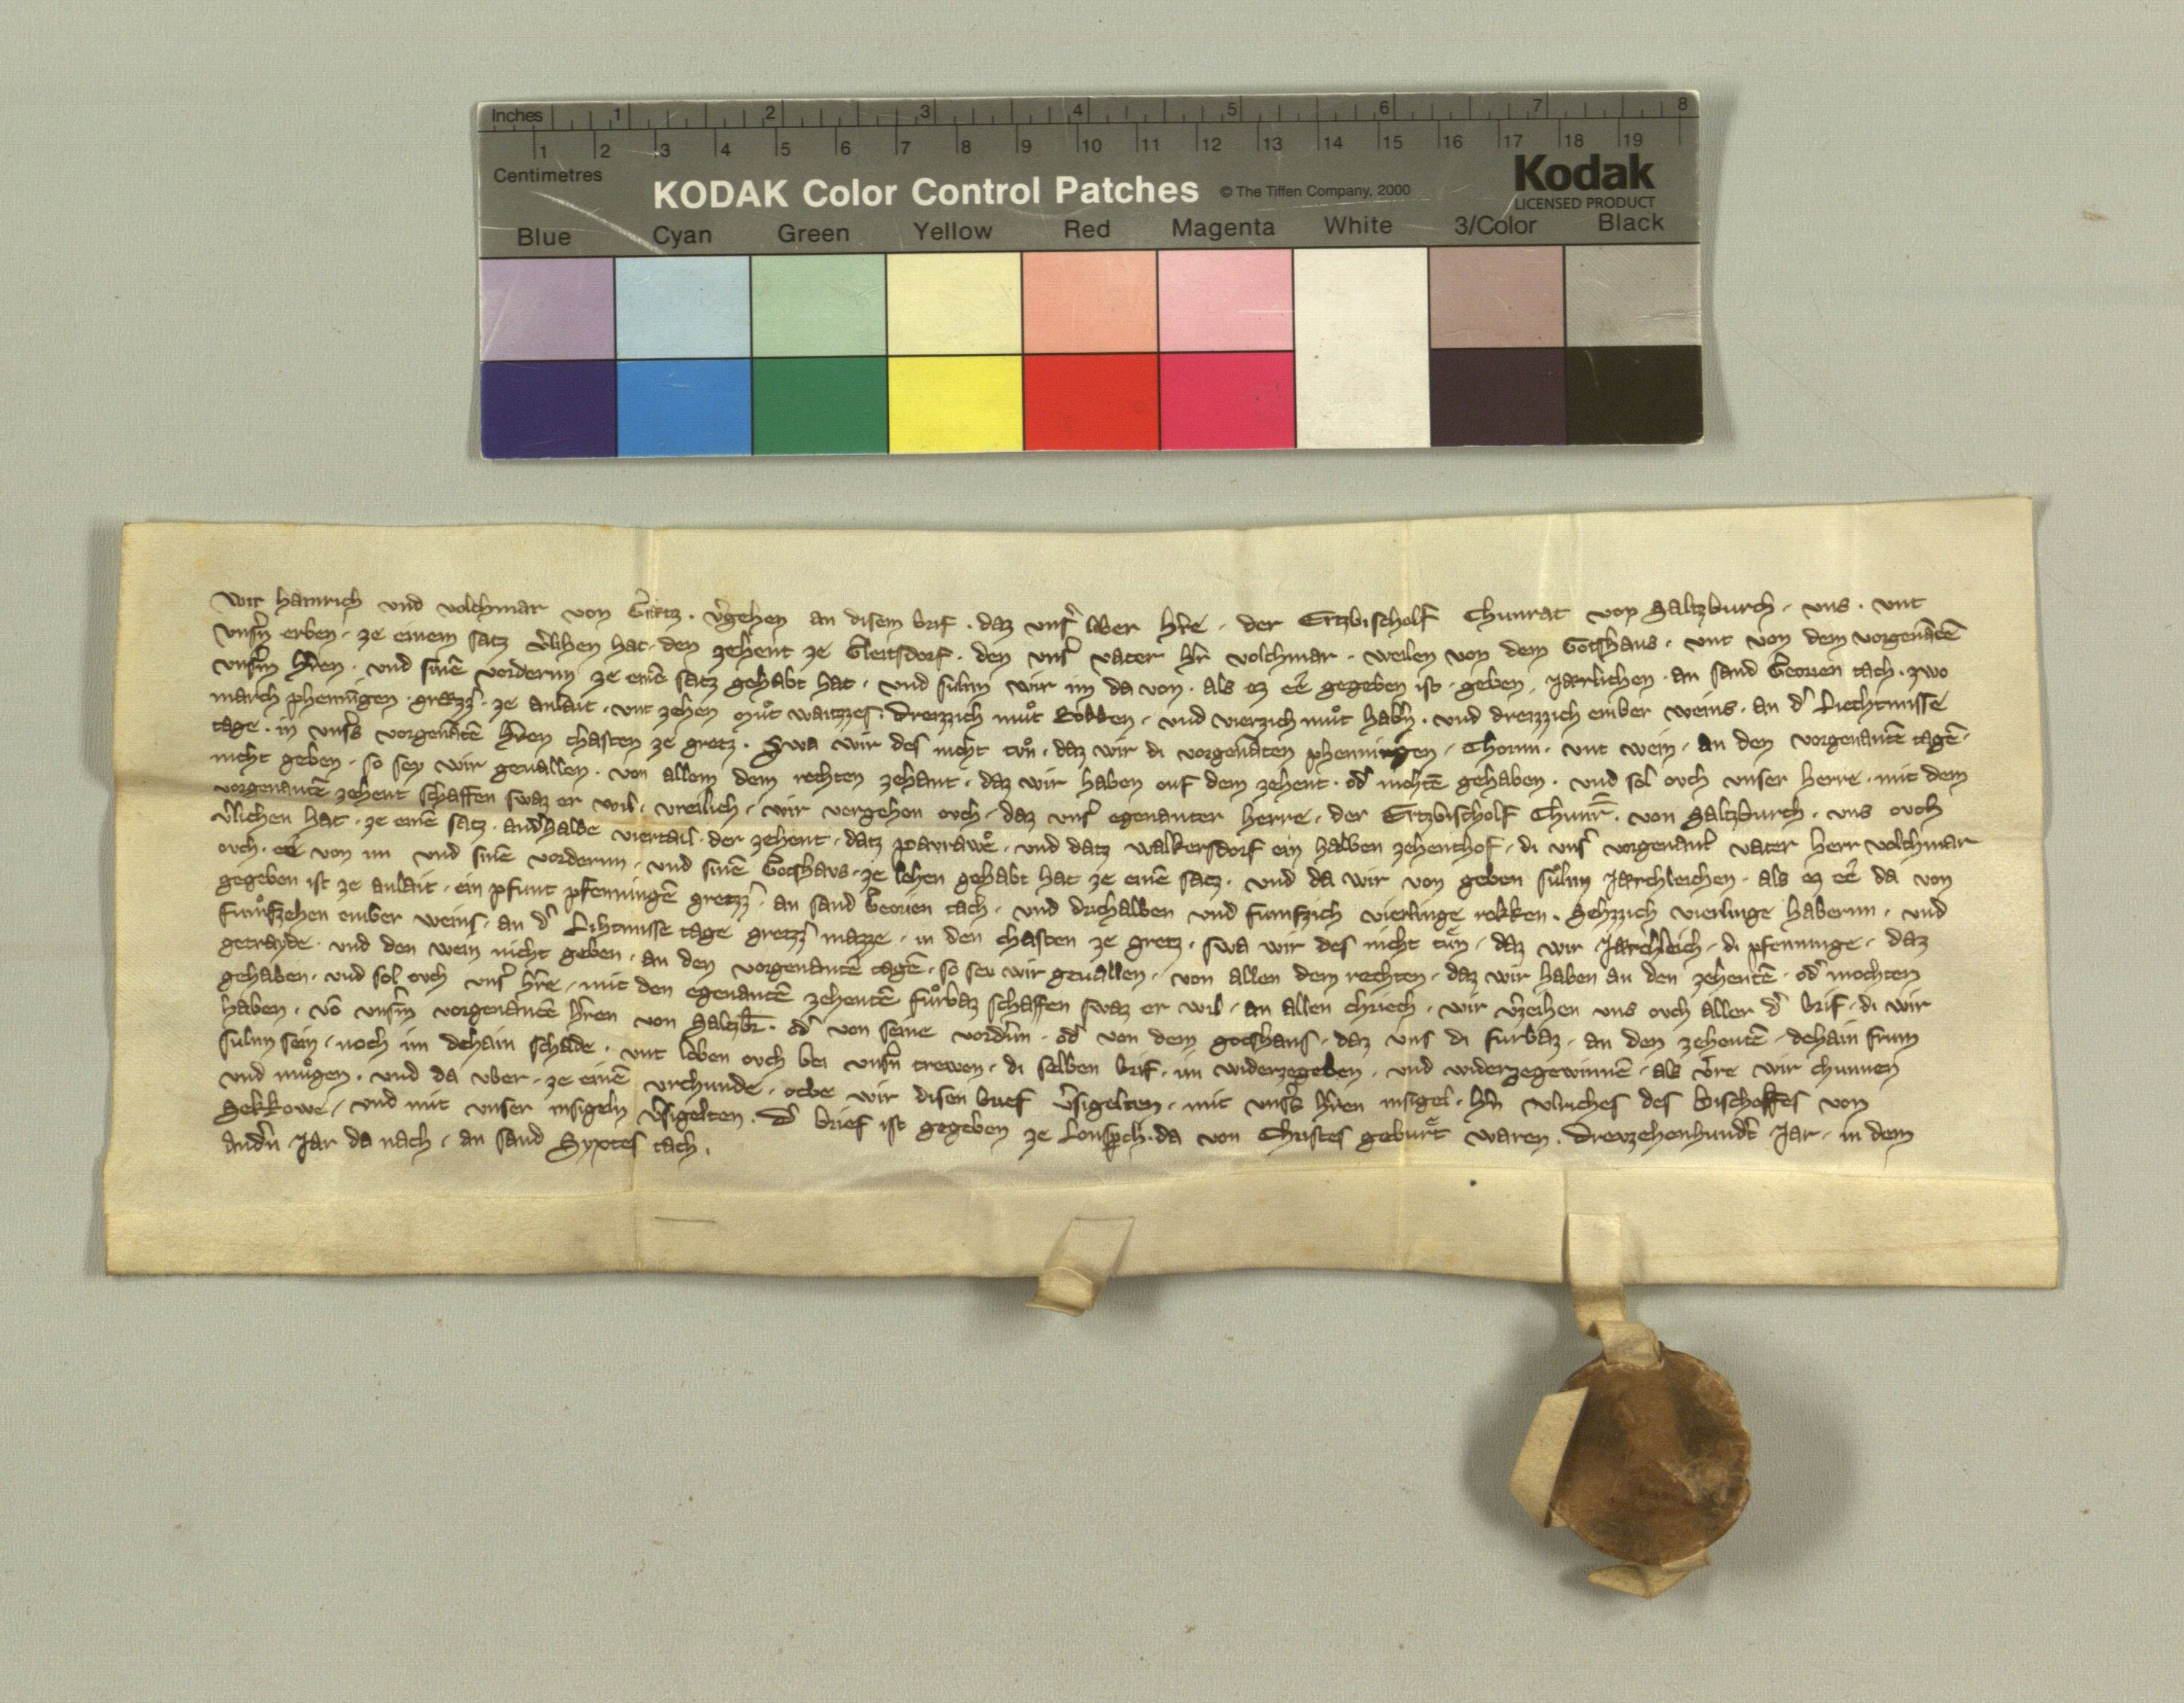 Inches 1 2 3 4 5 6 7 8
1 2 3 4 5 6 7 8 9 10 11 12 13 14 15 16 17 18 19
Centimetres
KODAK Color Control Patches © The Tiffen Company, 2000 Kodak
LICENSED PRODUCT
Blue Cyan Green Yellow Red Magenta White 3/Color Black
Wir Hainrich und volchmar von Grætz . v̾gehen an disem brif . daz uns̾ liber h̾re . der Ertzbischolf Chunrat von Saltzburch . uns . unt
uns̾n erben . ze einem satz v̾lihen hat . den zehent ze Gleitsdorf . den uns̾ vater h̾r volchmar . weilen von dem Gotshaus . unt von dem vorgenātē
uns̾m h̾ren . und sinē vordernn ze einē satz gehabt hat . und suln wir im da von . als ez eê gegeben ist . geben . Jærlichen . an sand Georien tach . zwo
march phenīngen . gretzz̾ . ze anlait . unt zehen muͦt waitzzes . Dreizzich muͦt Rokken . und vierzich muͦt hab̾n . und dreizzich ember weins . an d̾ Liechtmisse
tage . in uns̾s vorgenātē h̾ren chasten ze gretz . Swa wir des nicht tuͦn . daz wir di vorgenāten phenningen . Chorn . unt wein . an den vorgenantē tagē .
nicht geben . so sey wir geuallen . von allem dem rechten zehant . daz wir haben ouf dem zehent . od̾ mohtē gehaben . und sol ovch unser herre . mit dem
vorgenantē zehent schaffen swaz er wil . vreilich . wir vergehen ovch . daz uns̾ egenanter herre . der Ertzbischolf Chunr̄ . von Saltzburch . uns ovch
v̾lichen hat . ze einē satz . and̾halbe viertail . der zehent . datz pavrawe . und datz walkersdorf ein halben zehenthof . di uns̾ vorgenant̾ vater herr volchmar
ovch . eê von im und sinē vordernn . und sinē Gotshavs . ze lehen gehabt hat ze einē satz . und da wir von geben suͤln Jærchleichen . als ez eê da von
gegeben ist ze anlait . ein pfunt pfenningē gretzz̾ . an sand Georien tach . und drithalben und fumfzich vierlinge rokken . Sehzzich vierlinge habernn . und
fumfzehen ember weins . an d̾ Lihtmisse tage gretzz̾ mazze . in den chasten ze gretz . swa wir des nicht tuͤn . daz wir Jærchleich . di pfenninge . daz
getrayde . und den wein nicht geben . an den vorgenantē tagē . so sei wir geuallen . von allen dem rechten . daz wir haben an den zehentē . od̾ mochten
gehaben . und sol ovch uns̾ h̾re . mit den egenantē zehentē fuͦrbaz schaffen swaz er wil . an allen chriech . wir v̾zeihen uns ovch aller d̾ brif . di wir
haben . vō uns̾m vorgenantē h̾ren von Saltzb̄r . od̾ von seinē vord̾nn . od̾ von dem gotshaus . daz uns di furbaz . an den zehentē . dehain frum
suln sein . noch im dehain schade . unt loben ovch bei uns̾n trewen . di selben brif . im widerzegeben . und widerzegewinnē . als v̾re wir chunnen
und muͦgen . und da uber . ze einē urchunde . gebe wir disen brief v̾sigelten . mit uns̾s h̾ren insigel . h̾n Ulriches des Bischoffes von
Sekkowe . und mit unser insigeln v̾sigelten . D̾ brief ist gegeben ze Lonsp̄ch . da von Christes geburt waren . Drevzehenhund̾t Jar . in dem
and̾n Jar da nach . an sand Syxtes tach .